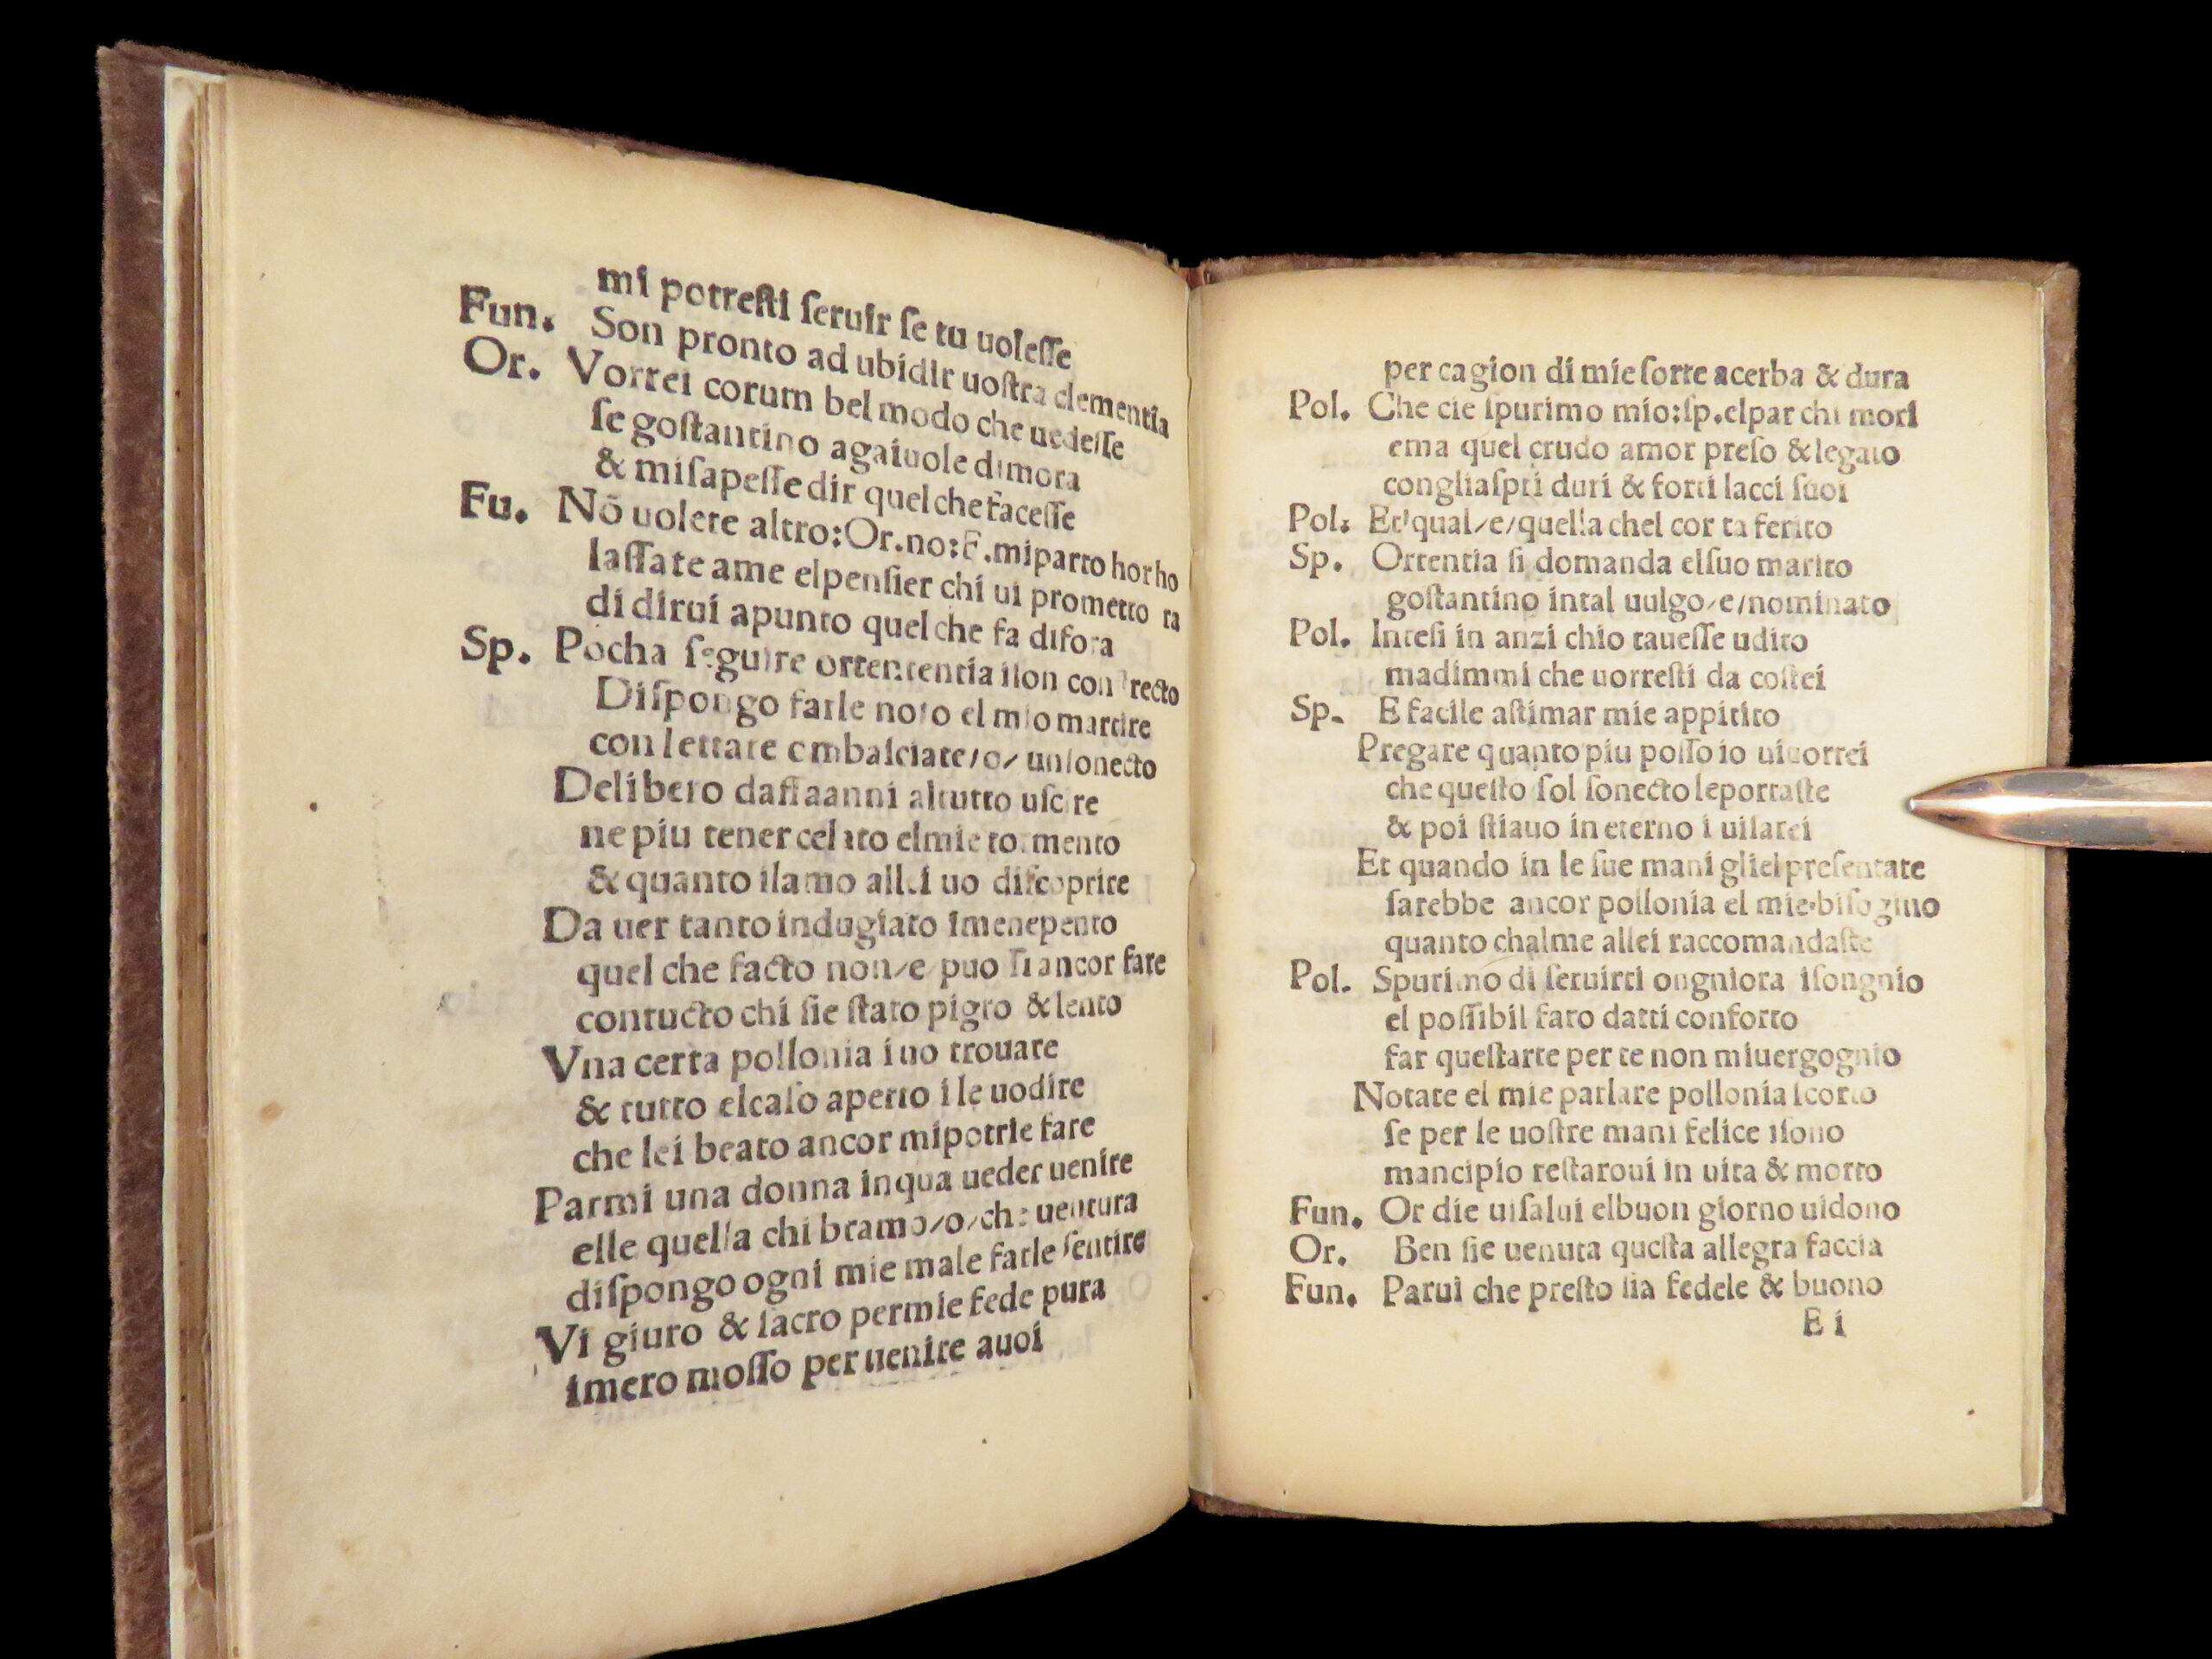 mi potreſti ſeruir ſe tu uoleſſe
Fun. Son pronto ad ubidir uoſtra clementia
Or. Vorrei corum bel modo che uedeſſe
ſe goſtantino agaiuole dimora
& miſapeſſe dir quel che faceſſe
Fu. Nō uolete altro:Or.no:F.miparto hor ho
laſſate ame elpenſier chi ui prometto ra
di dirui apunto quel che fa difora
Sp. Pocha ſeguire ortententia con recto
Diſpongo farle noto el mio martire
con lettare embaſciate/o/ unſonecto
Delibero daffaanni altutto uſcire
ne piu tener celato elmie tormento
& quanto ilamo allei uo diſcoprire
Da uer tanto indugiato imenepento
quel che facto non/e/puo ſi ancor fare
contucto chi ſie ſtato pigro & lento
Vna certa pollonia iuo trouare
& tutto elcaſo aperto i le uodire
che lei beato ancor mipotrie fare
Parmi una donna inqua ueder uenire
elle quella chi bramo/o/che uentura
diſpongo ogni mie male farle ſentire
Vi giuro & ſacro permie fede pura
imero moſſo per uenire auoi
per cagion di mie ſorte acerba & dura
Pol. Che cie ſpurimo mio:ſp.elpar chi mori
ema quel crudo amor preſo & legato
congliaſpri duri & forti lacci ſuoi
Pol. Et qual/e/quella chel cor ta ferito
Sp. Ortentia ſi domanda elſuo marito
goſtantino intal uulgo/e/nominato
Pol. Inteſi in anzi chio taueſſe udito
madimmi che uorreſti da coſtei
Sp. E facile aſtimar mie appitito
Pregare quanto piu poſſo io uiuorrei
che queſto ſol ſonecto leportaſte
& poi ſtiauo in eterno i uiſarei
Et quando in le ſue mani glielpreſentate
ſarebbe ancor pollonia el mie biſogino
quanto chalme allei raccomandaſte
Pol. Spurimo di ſeruirti ongniora iſongnio
el poſſibil faro datti conforto
far queſtarte per te non miuergognio
Notate el mie parlare pollonia ſcorto
ſe per le uoſtre mani felice iſono
mancipio reſtaroui in uita & morto
Fun. Or die uiſalui elbuon giorno uidono
Or. Ben ſie uenuta queſta allegra faccia
Fun. Parui che preſto ſia fedele & buono
E i